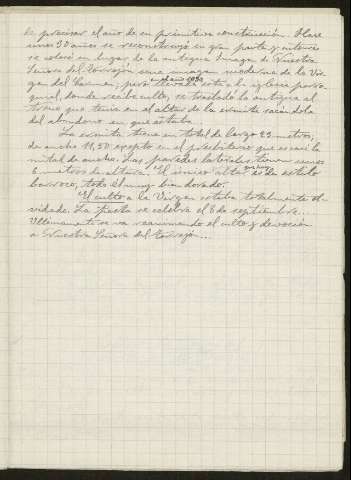 de precisar el año de su primitiva construcción. Hace
unos 30 años se reconstruyó en gran parte y entonces
se colocó en lugar de la antigua Imagen de Nuestra
Señora del Torrejón una imagen moderna de la Vir-
gen del Carmen, pero llevada esta a la iglesia parro-
quial, donde recibe culto, se trasladó la antigua al
trono que tenía en el altar de la ermita sacándola
del abandono en que estaba.
La ermita tiene un total de largo 23 metros,
de ancho 11,50 excepto en el presbiterio que es casi la
mitad de ancho. Las paredes laterales tienen unos
6 metros de altura. El único altar que tiene es de estilo
barroco, todo él muy bien dorado.
El culto a la Virgen estaba totalmente ol-
vidado. La fiesta se celebra el 8 de septiembre...
Ultimamente se va reanimando el culto y devoción
a Nuestra Señora del Torrejón...